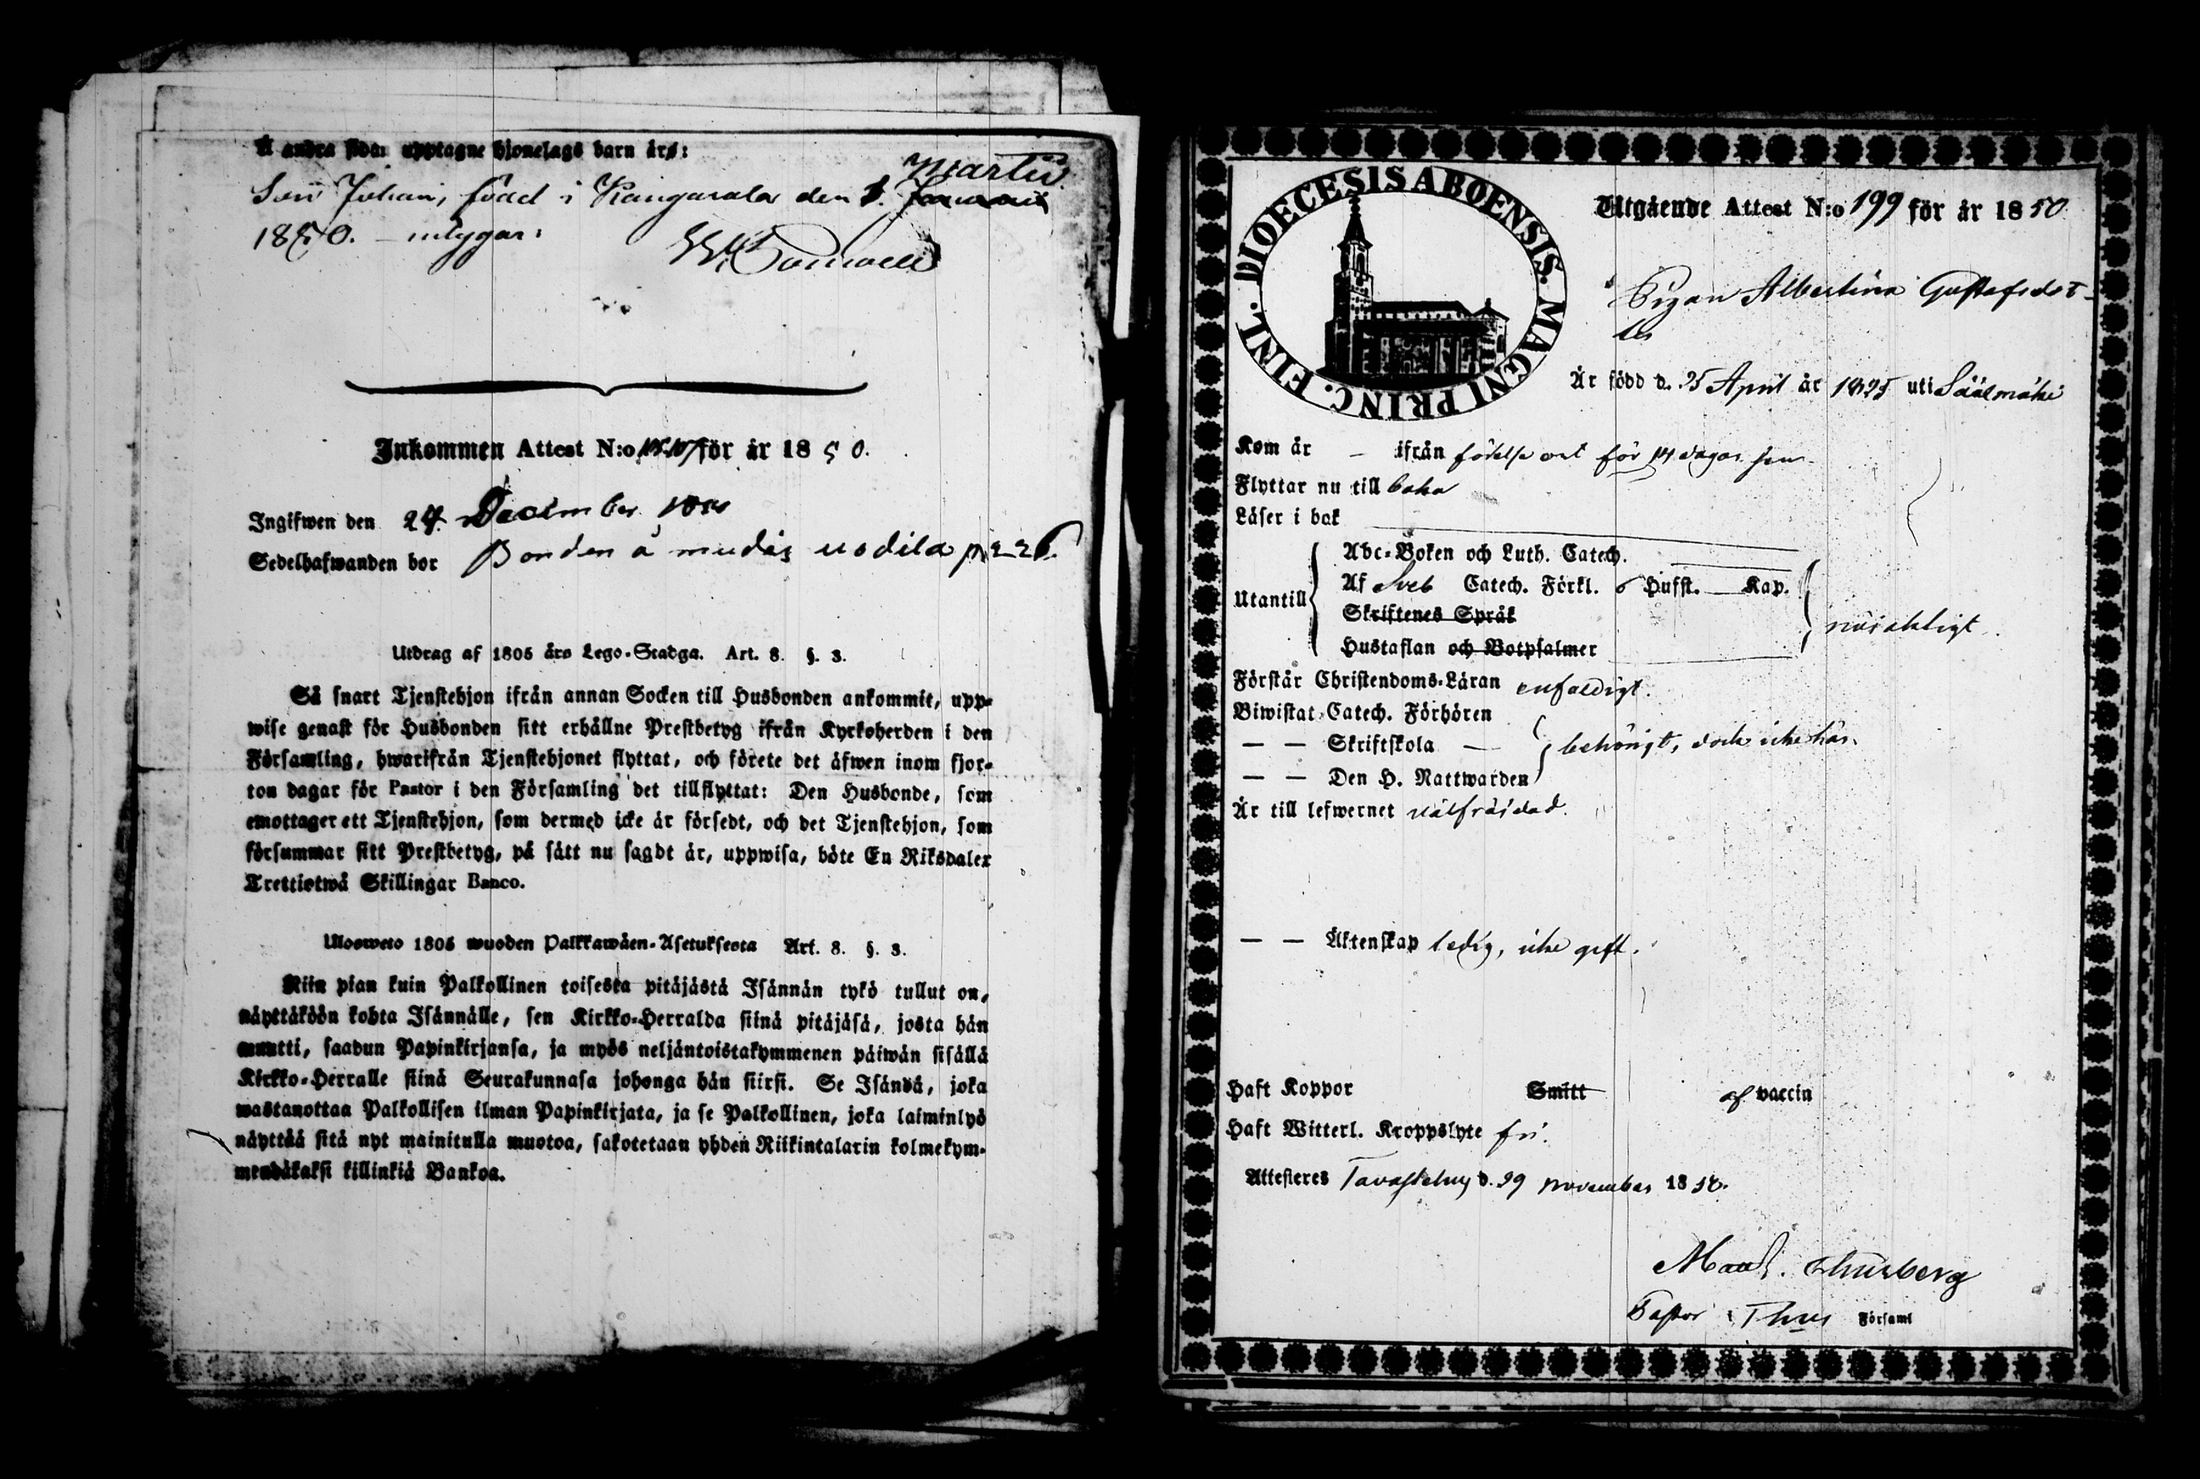 Å andra sidan upptagne hjonelags barn äro:
Son Johan, född i Kangasala den 1. Januarii Martii
1850. intygar:
Inkommen Attest N:o för år 1850.
Ingifwen den 24 December
Sedelhafwanden bor Bonden å
Utdrag af 1805 års Lego-Stadga. Art. 8. §. 3.
Så snart Tjenstehjon ifrån annan Socken till Husbonden ankommit, upp-
wise genast för Husbonden sitt erhållne Prestbetyg ifrån Kyrkoherden i den
Församling, hwarifrån Tjenstehjonet flyttat, och förete det äfwen inom fjor-
ton dagar för Pastor i den Församling det tillflyttat: Den Husbonde, som
emottager ett Tjenstehjon, som dermed icke är försedt, och det Tjenstehjon, som
försummar sitt Prestbetyg, på sätt nu sagdt är, uppwisa, böte En Riksdaler
Trettiotwå Skillingar Banco.
Ulosweto 1805 wuoden Palkkawäen-Asetuksesta Art. 8. §. 3.
Niin pian kuin Palkollinen toisesta pitäjästä Isännän tykö tullut on,
näyttäköön kohta Isännälle, sen Kirkko-Herralda siinä pitäjäsä, josta hän
muutti, saadun Papinkirjansa, ja myös neljäntoistakymmenen päiwän sisällä
Kirkko-Herralle siinä Seurakunnasa johonga hän siirsi. Se Isändä, joka
wastanottaa Palkollisen ilman Papinkirjata, ja se Palkollinen, joka laiminlyö
näyttää sitä nyt mainitulla muotoa, sakotetaan yhden Riikintalarin kolmekym-
mendäkaksi killinkiä Bankoa.
DIOECESIS ABOENSIS. MAGNI PRINC. FINL.
Utgående Attest N:o 199 för år 1850
Pigan Albertina Gustafsdot-
ter
Är född d. 25 April år 1825 uti Sääksmäki
Kom år – ifrån födelse ort för 14 dagar sen
Flyttar nu till baka
Läser i bok
Utantill
Abc-Boken och Luth. Catech.
Af Sveb Catech. Förkl. 6 Hufst. — Kap.
Skriftenes Språk
Hustaflan och Botpsalmer
Förstår Christendoms-Läran enfaldigt.
Biwistat Catech. Förhören
— — Skriftskola —
behörigt, dock icke här.
— — Den H. Nattwarden
Är till lefwernet välfräjdad.
— — Äktenskap ledig, icke gift.
Haft Koppor Smitt af vaccin
Haft Witterl. Kroppslyte fri.
Attesteres Tavastehus d. 29 november 1850.
Thurberg
Pastor Församl